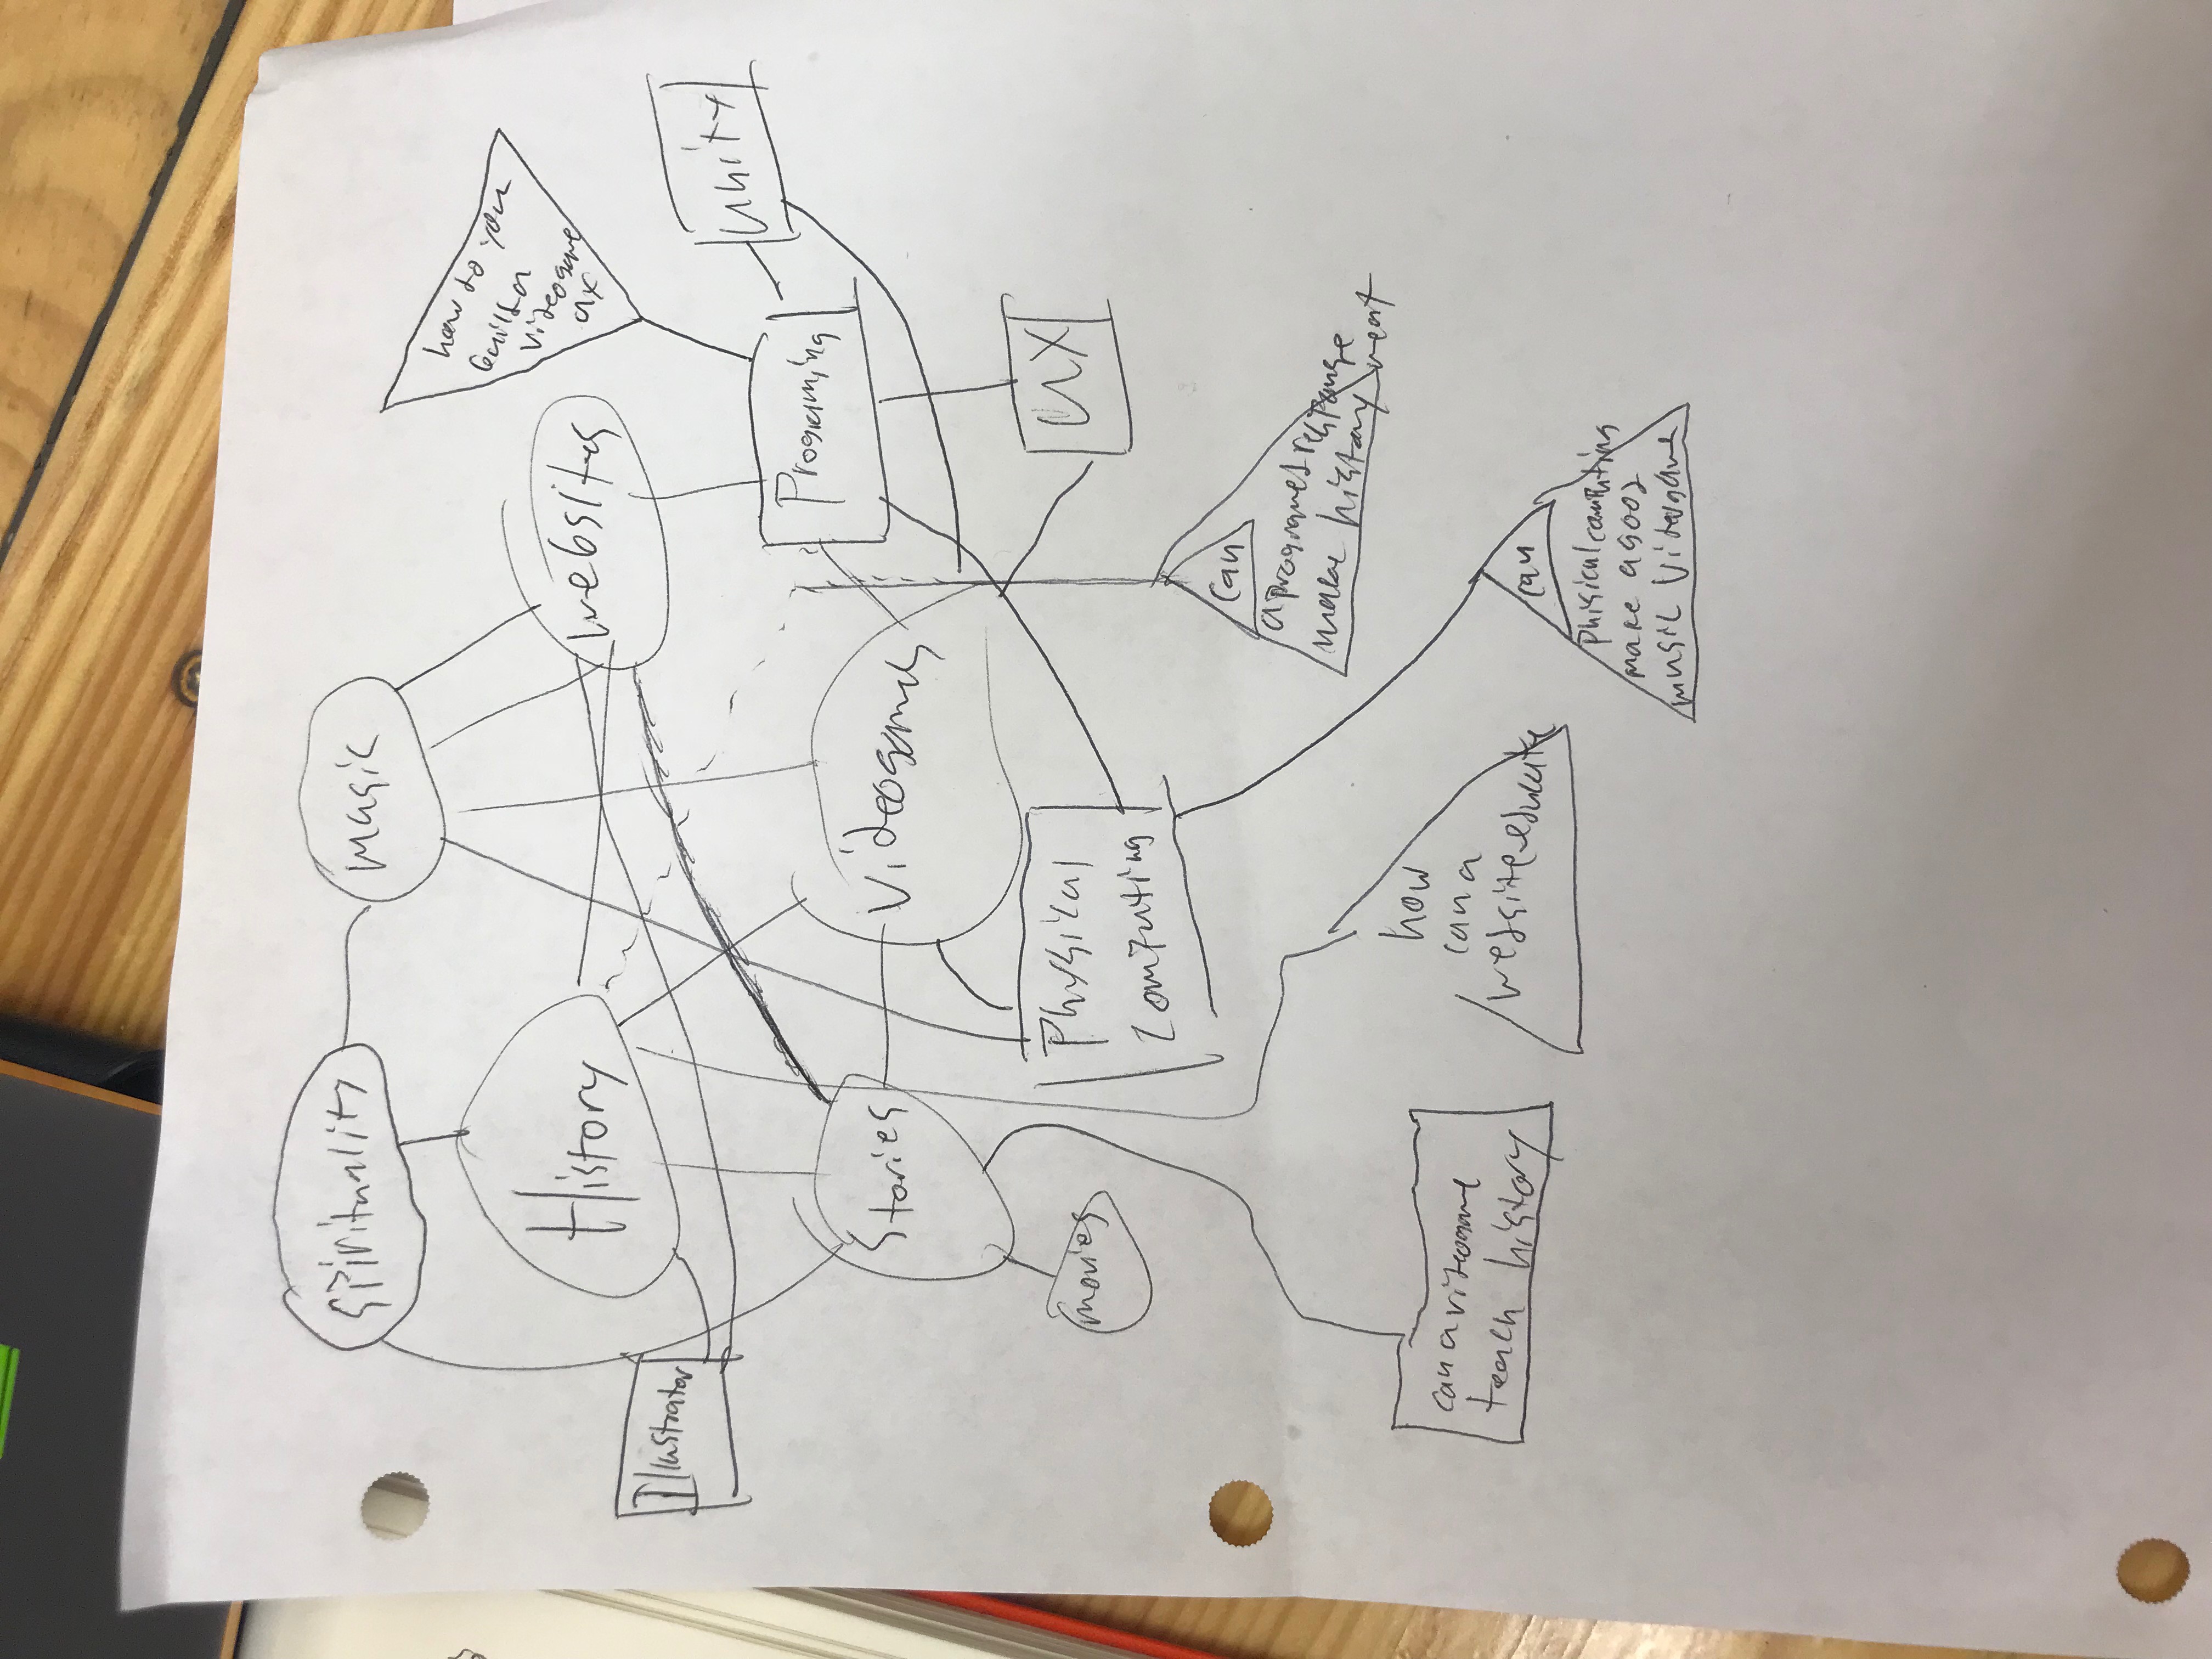 Spirituality
music
how do you
build a
videogame
ux
History
websites
Illustrator
unity
Programing
Stories
Videogames
movies
Physical
Computing
UX
can
a programed response
make history neat
can a videogame
teach history
how
can a
website educate
can
phisical computing
make a good
music videogame